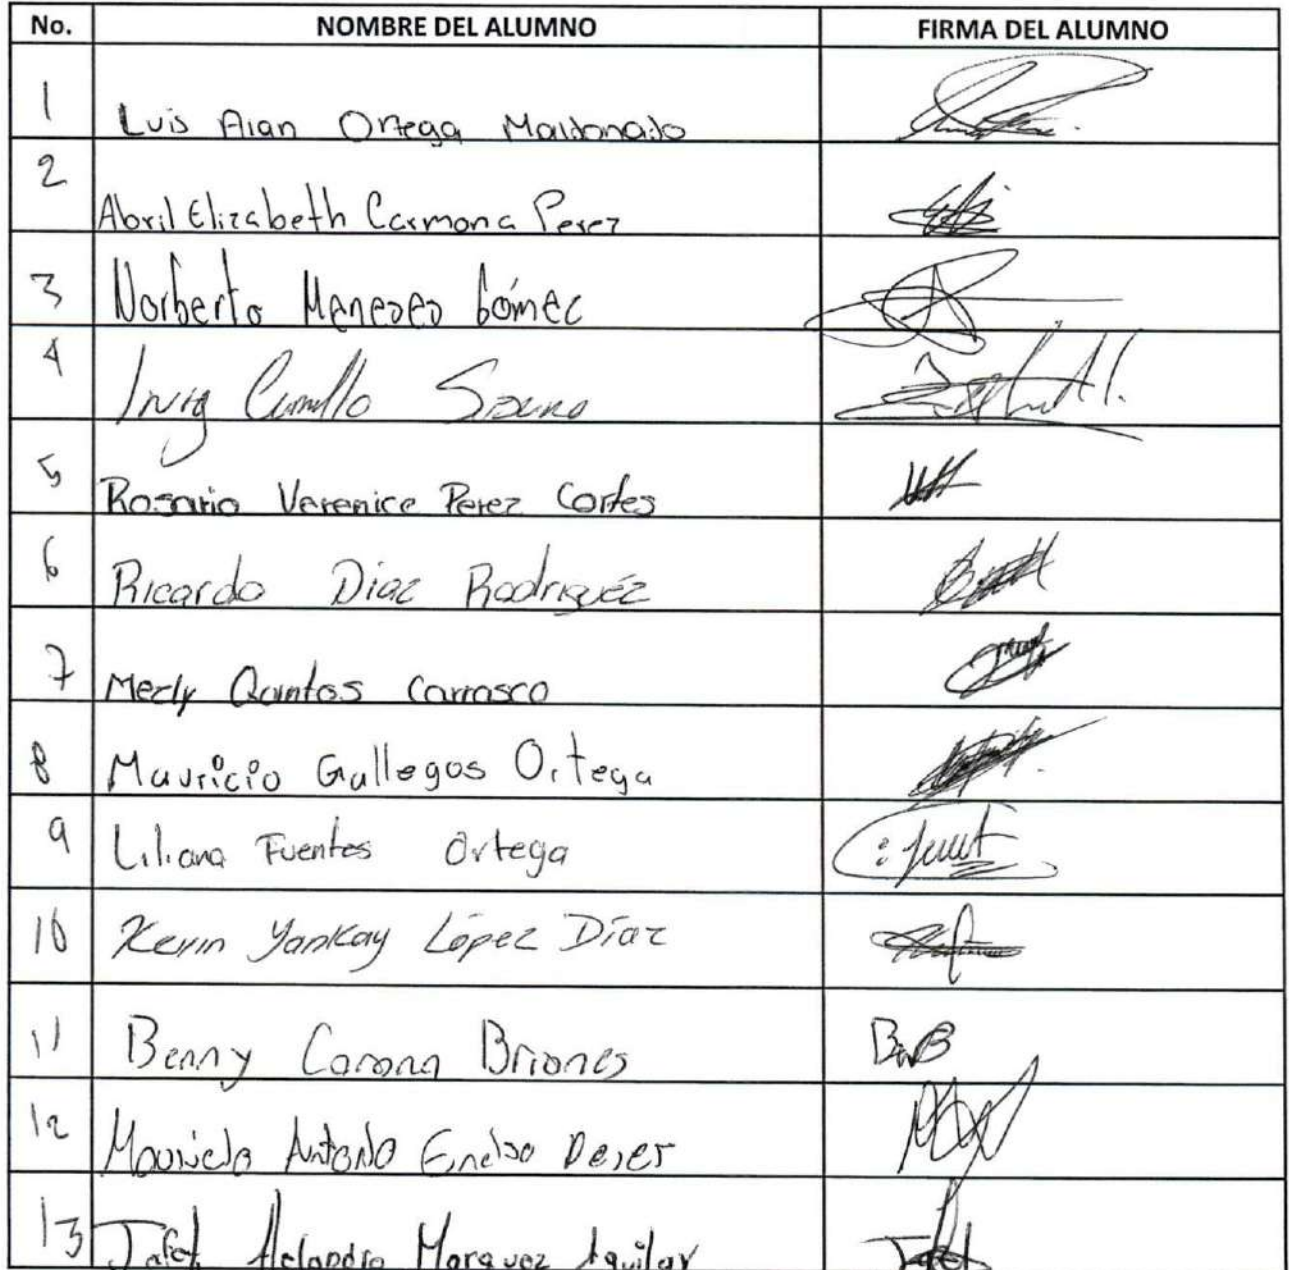 No. NOMBRE DEL ALUMNO FIRMA DEL ALUMNO
1 Luis Alan Ortega Maldonado
2 Abril Elizabeth Carmona Perez
3 Norberto Meneses Gómez
4
5 Rosario Verenice Perez Cortes
6 Ricardo Díaz Rodriguéz
7 Merly Quintos Carrasco
8 Mauricio Gallegos Ortega
9 Liliana Fuentes Ortega
10 Kevin Yankay López Díaz
11 Benny Corona Briones
12 Mauricio Antonio
13 Jafet Alejandro Marquez Aguilar Jafet